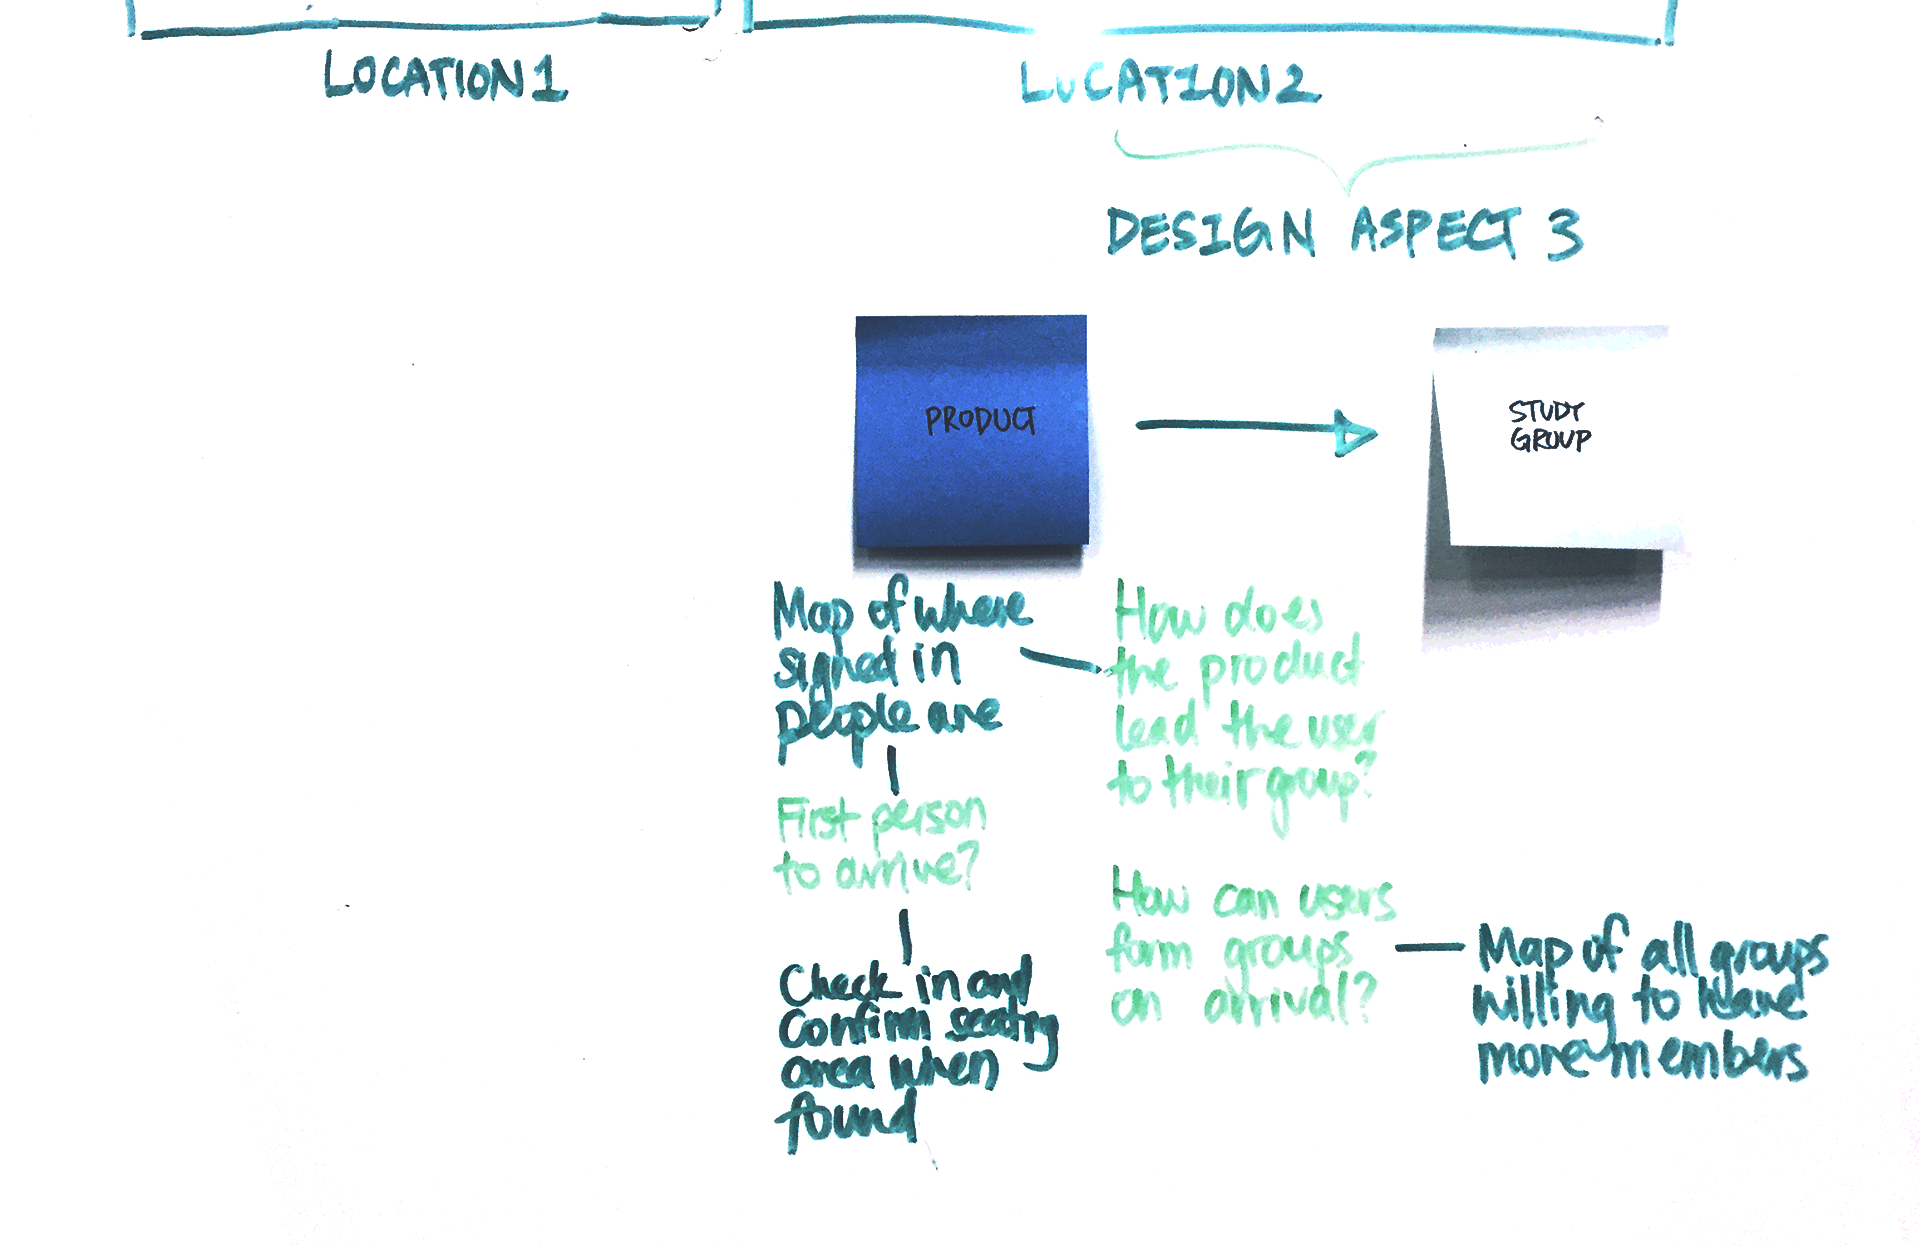 LOCATION 1
LOCATION 2
DESIGN ASPECT 3
PRODUCT
STUDY
GROUP
Map of where
signed in
people are
First person
to arrive?
Check in and
Confirm seating
area when
found
How does
the product
lead the user
to their group?
How can users
form groups
on arrival?
Map of all groups
willing to have
more members